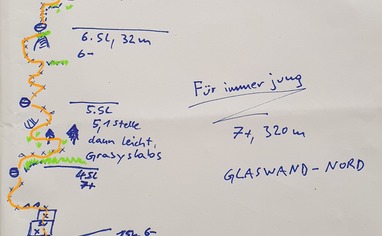 6. SL, 32m
6-
5.SL
5,1 Stelle
dann leicht,
Grasyslabs
4.SL
7+
6-
Für immer jung
7+, 320m
GLASWAND-NORD